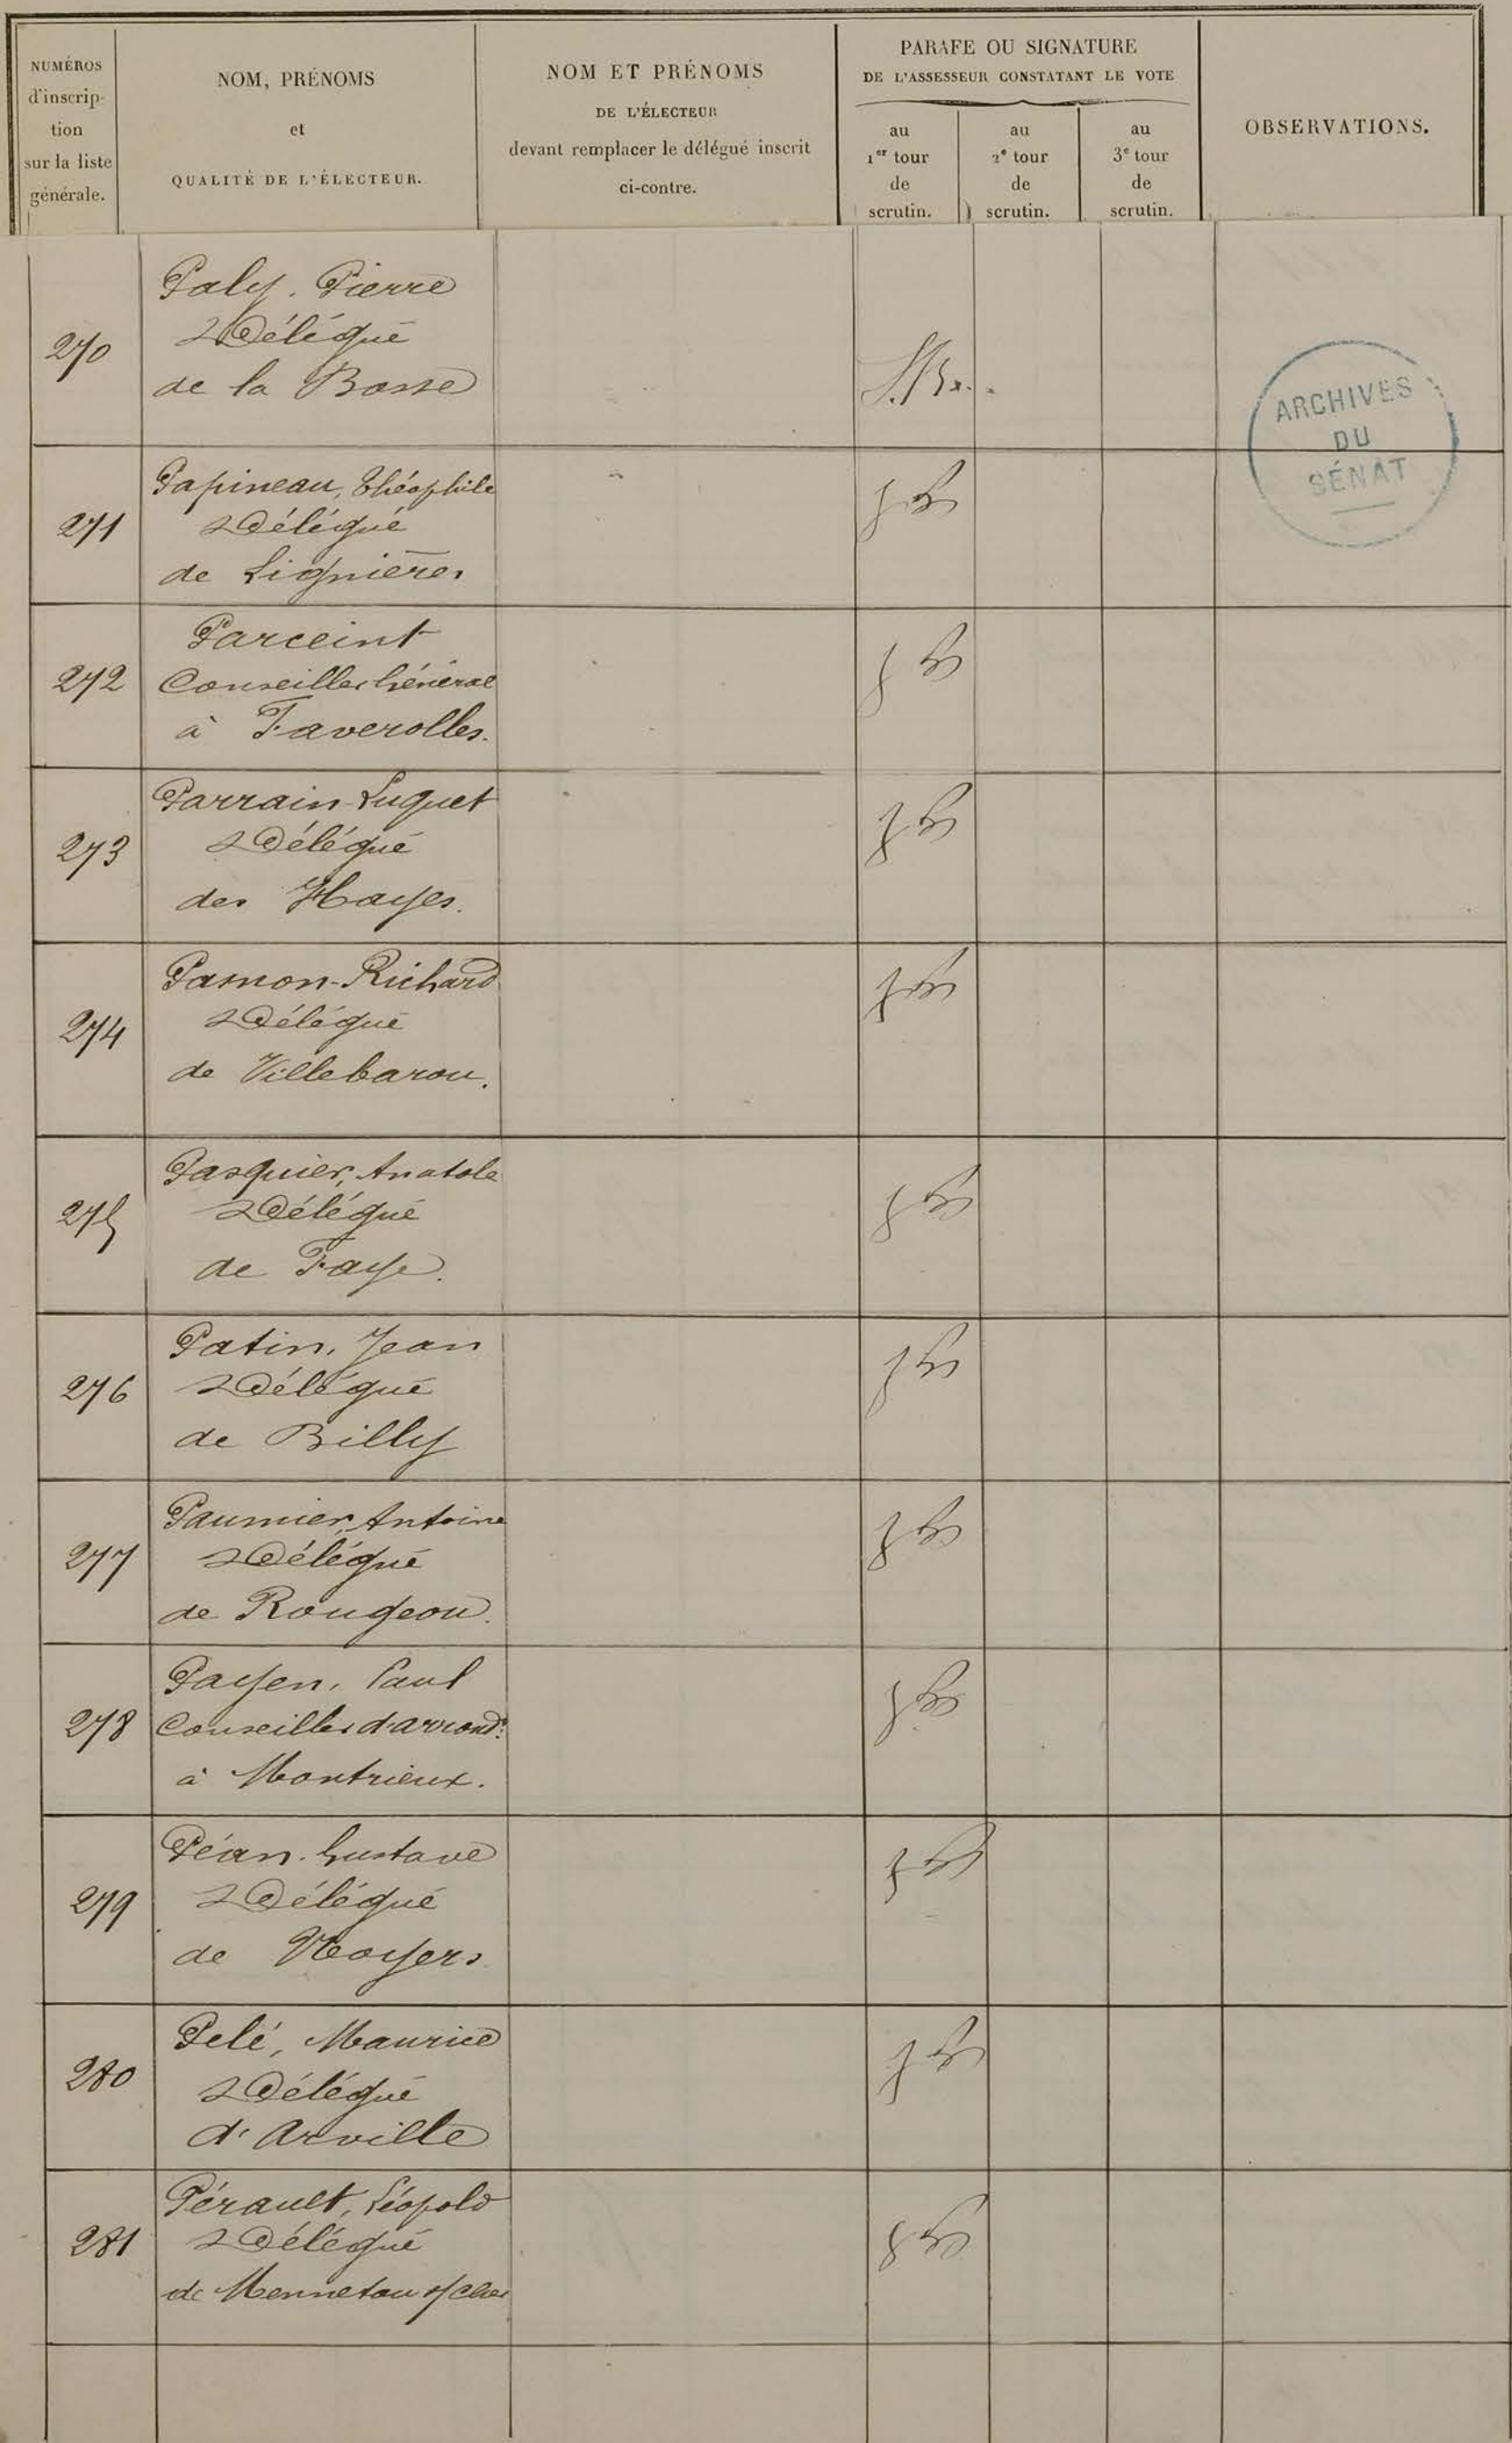 NUMÉROS
d'inscrip-
tion
sur la liste
générale.
NOM, PRÉNOMS
et
QUALITÉ DE L'ÉLECTEUR.
NOM ET PRÉNOMS
DE L'ÉLECTEUR
devant remplacer le délégué inscrit
ci-contre.
PARAFE OU SIGNATURE
DE L'ASSESSEUR CONSTATANT LE VOTE
au
1er tour
de
scrutin.
au
2e tour
de
scrutin.
au
3e tour
de
scrutin.
OBSERVATIONS.
270
Paly. Pierre
Délégué
de la Bosse
ARCHIVES
DU
SÉNAT
271
Papineau, Théophile
Délégué
de Lignières
272
Parceint
Conseiller Général
à Faverolles.
273
Parrain-Luquet
Délégué
des Hayes.
274
Pasnon-Richard
Délégué
de Villebarou.
275
Pasquier, Anatole
Délégué
de Faye.
276
Patin, Jean
Délégué
de Billy
277
Paumier, Antoine
Délégué
de Rougeou.
278
Payen, Paul
Conseiller d'arrondt.
à Montrieux.
279
Péan. Gustave
Délégué
de Noyers
280
Pelé, Maurice
Délégué
d'Arville
281
Pérault, Léopold
Délégué
de Mennetou s/Cher